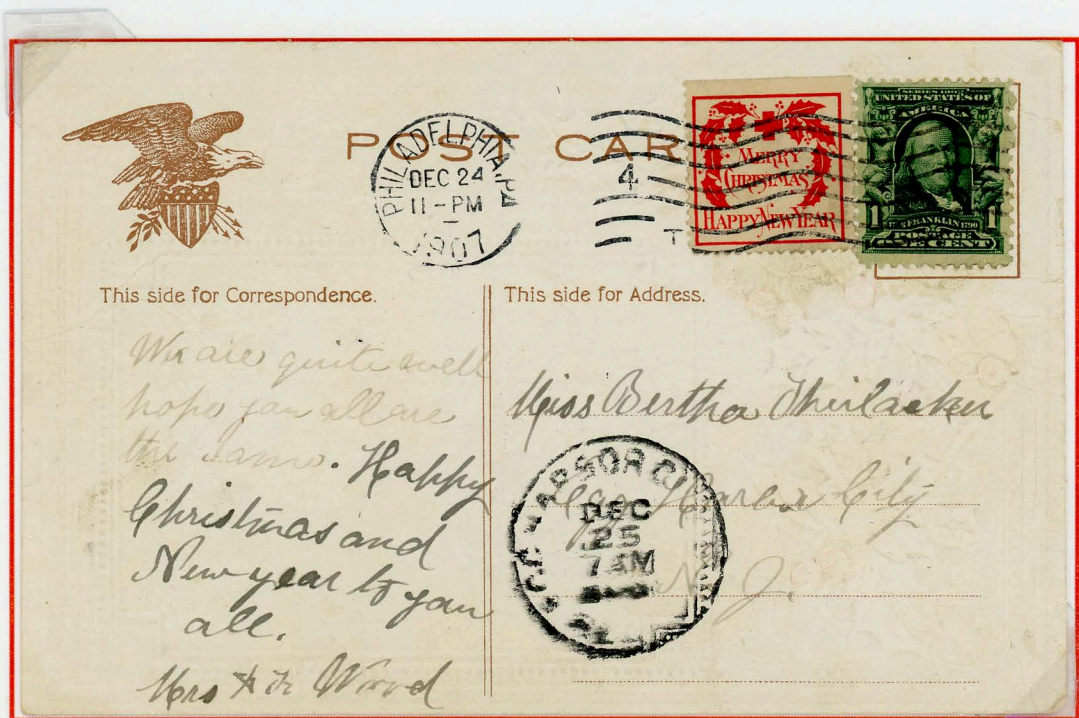 POST CARD
PHILADELPHIA, PA
DEC 24
11-PM
1907
4
MERRY
CHRISTMAS
HAPPY NEW YEAR
SERIES 1902
UNITED STATES OF
AMERICA
1 FRANKLIN 1790 1
POSTAGE
ONE CENT
This side for Correspondence.
We are quite well
hope you all are
the same. Happy
Christmas and
New year to you
all.
Mrs Wood
This side for Address.
Miss Bertha Theilacker
Egg Harbor City
N. J.
HARBOR CI
DEC
25
7 AM